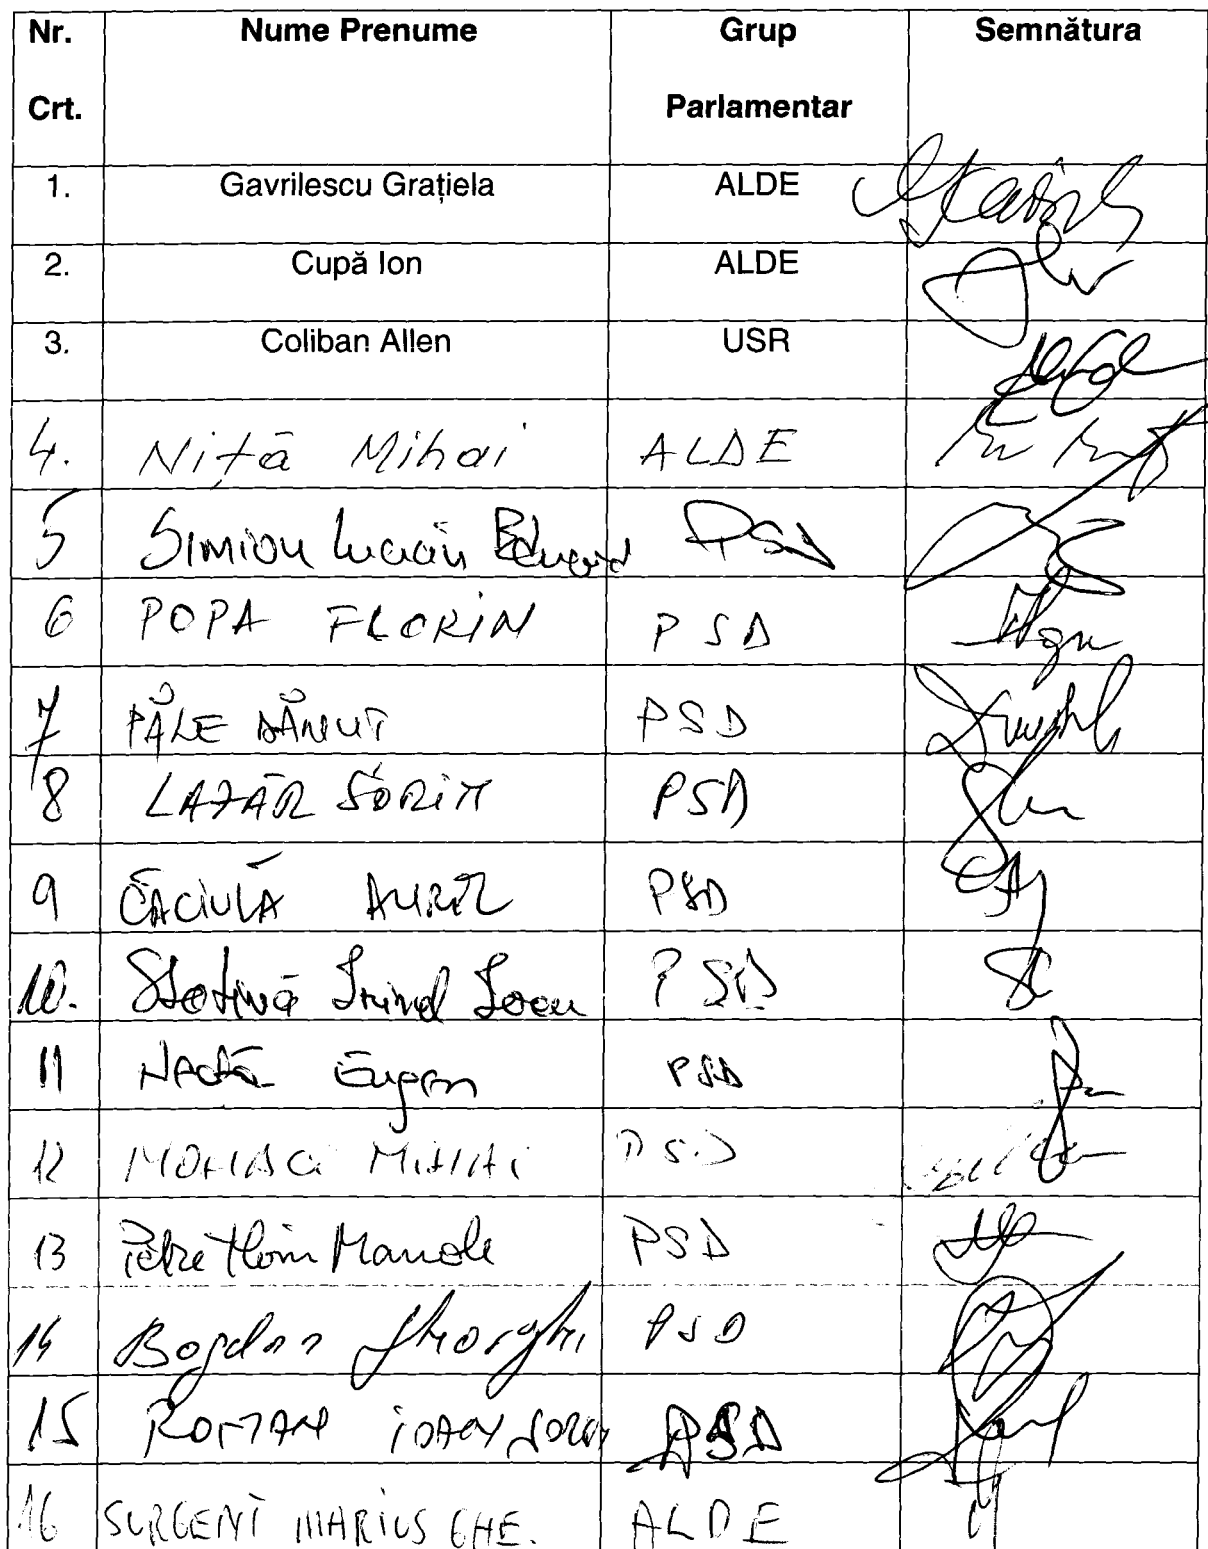 Nr. Crt. Nume Prenume Grup Parlamentar Semnătura
1. Gavrilescu Grațiela ALDE
2. Cupă Ion ALDE
3. Coliban Allen USR
4. Niță Mihai ALDE
5 Simion Lucian Eduard PSD
6 POPA FLORIN PSD
7 PĂLE DĂNUȚ PSD
8 LAZĂR SORIN PSD
9 CĂCIULĂ AUREL PSD
10. PSD
11 Eugen PSD
12 MOHACI MIHAI PSD
13 Petre Florin Manole PSD
14 Bogdan Gheorghe PSD
15 ROMAN IOAN SORIN PSD
16 SURGENT MARIUS GHE. ALDE